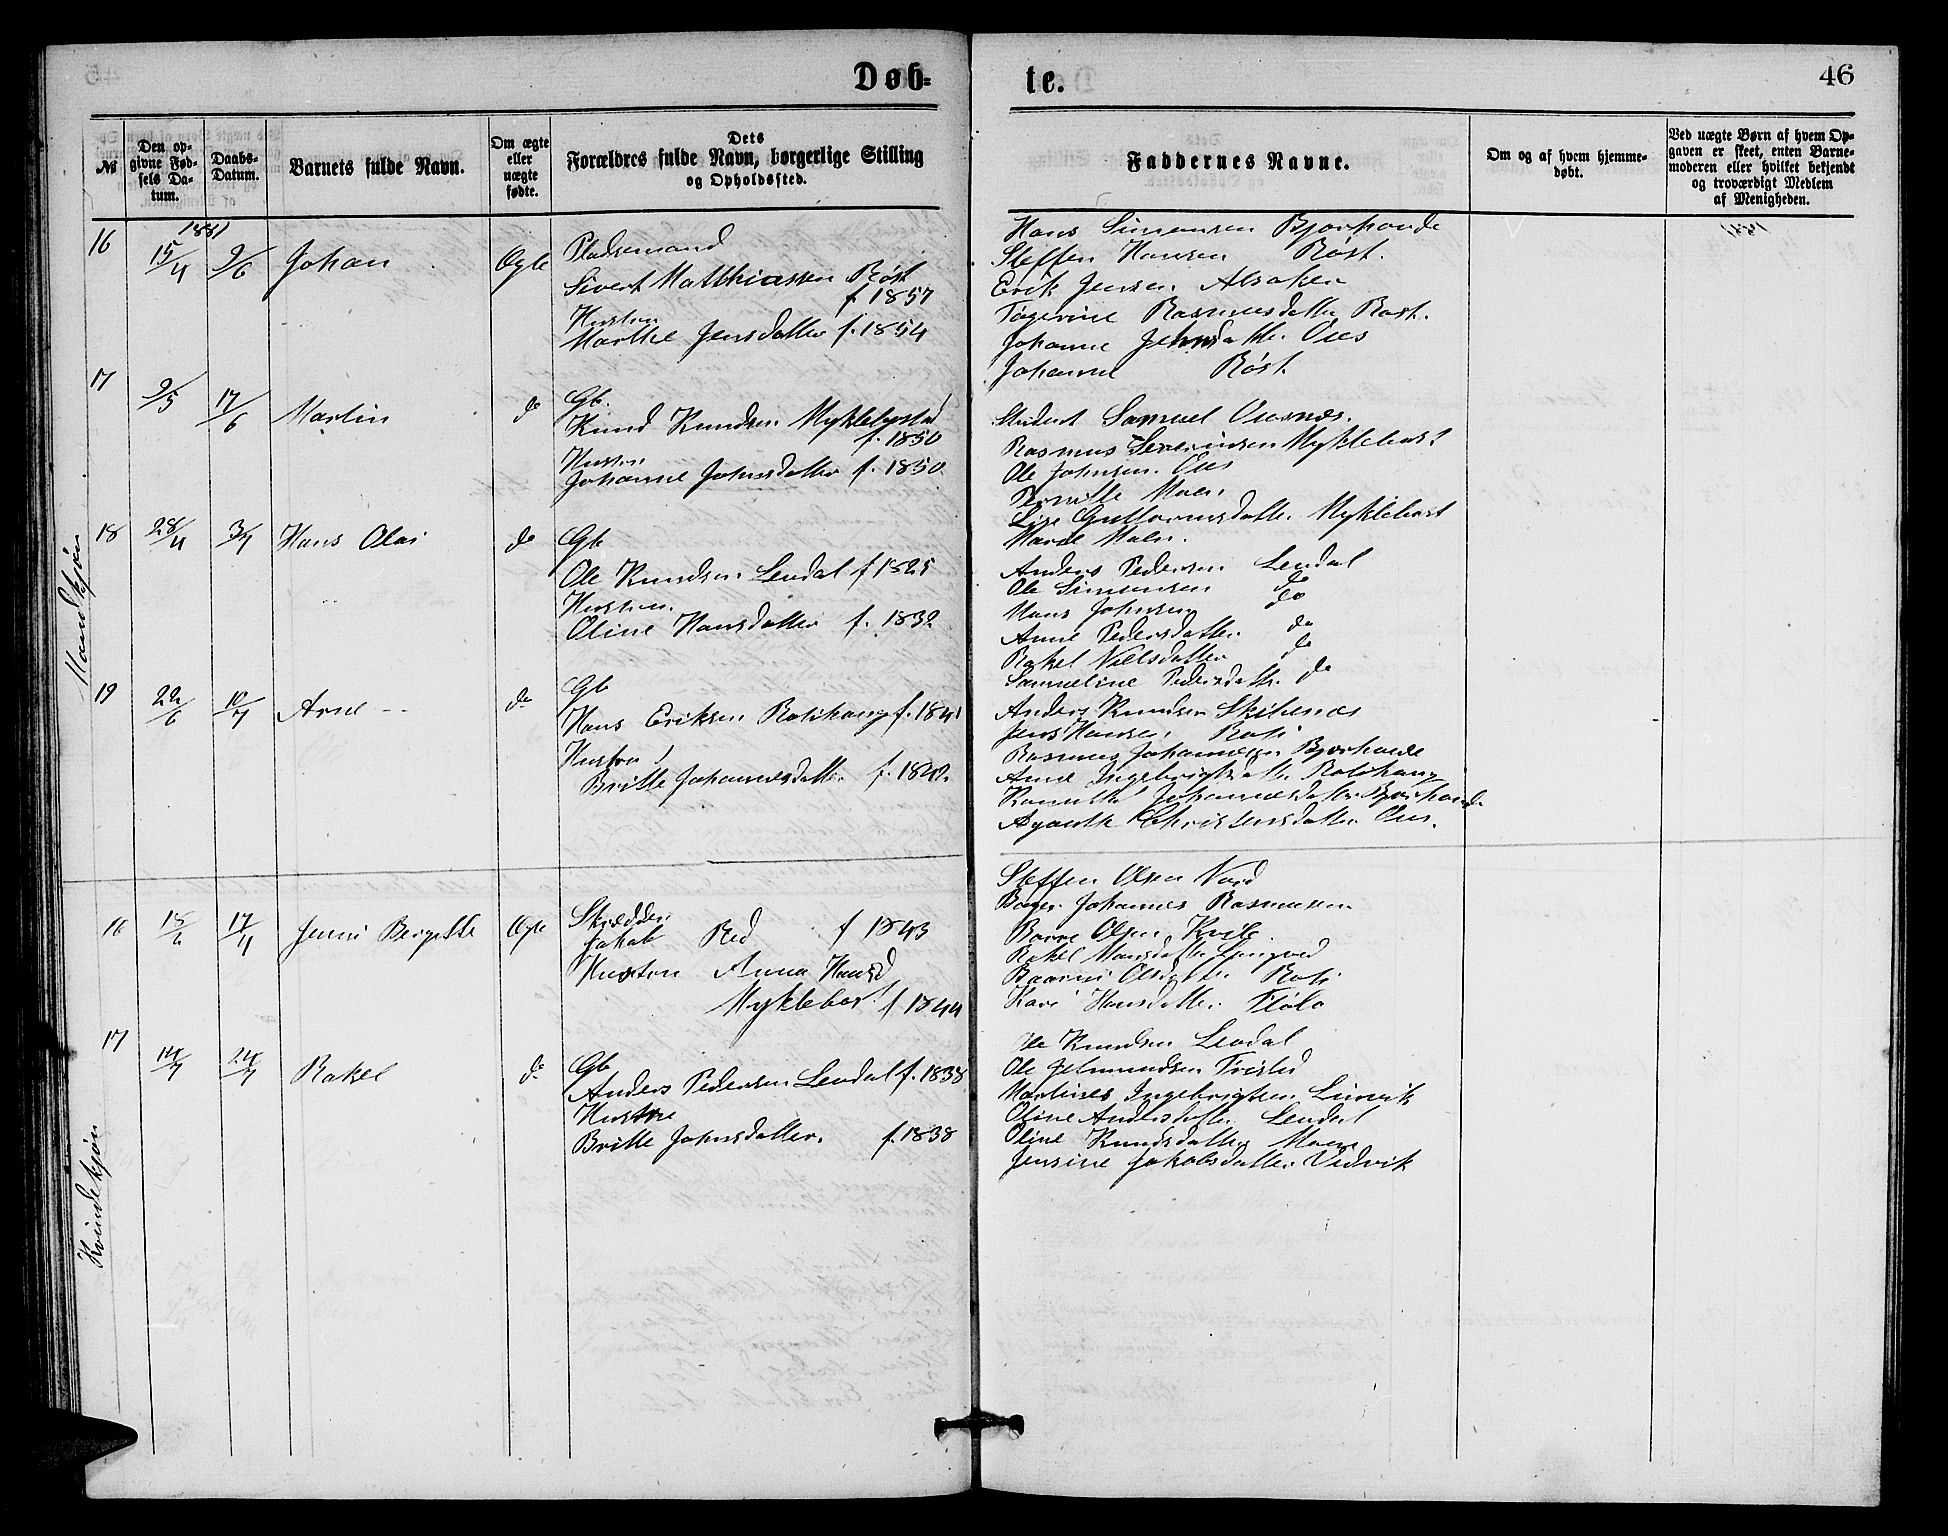 Døb-
te.
46
№
Den opgivne Fødsels Datum.
Daabs-Datum.
Barnets fulde Navn.
Om ægte eller uægte fødte.
Dets Forældres fulde Navn, borgerlige Stilling og Opholdssted.
Faddernes Navne.
Om og af hvem hjemmedøbt.
Ved uægte Børn af hvem Opgaven er skeet, enten Barnemoderen eller hvilket bekjendt og troværdigt Medlem af Menigheden.
Mandkjøn
1881
16 15/4 9/6 Johan Ægte Pladsemand
Sivert Matthiassen Røst
f. 1857
Hustru
Marthe Jensdatter f. 1854
Hans Simensen Bjorhovde
Steffen Hansen Røst.
Erik Jensen Alsaker
Rasmusdatter Røst.
Johanne Jensdatter Oves
Johanne Røst
17 9/5 17/6 Martin do Gb.
Knud Knudsen Myklebostad
f. 1850
Hustru
Johanne Johnsdatter f. 1850.
Student Samuel
Rasmus Severinsen Myklebost
Ole Johnsen
Pernille Moen
Lise Guttormsdatter Myklebost
Moen.
18 28/4 3/7 Hans Olai do Gb
Ole Knudsen Leudal f 1825
Hustru
Oline Hansdatter f. 1832
Anders Pedersen Leudal
Ole Simensen do
Hans Johnsen do
Anne Pedersdatter do
Rakel Nilsdatter do
Samueline Pedersdatter do
19 22/6 10/7 Arne do Gb
Hans Eriksen f. 1841
Hustru
Britte Johannesdatter f. 1842.
Anders Knudsen
Jens Hansen
Rasmus Johannesen Bjorhovde
Anne Ingebrigtsdatter
Johannesdatter Bjorhovde
Christensdatter
Kvindekjøn
16 18/6 17/4 Jenni Bergitte Ægte Skrædder
Jakob Red f 1843
Hustru Anna Hansd
Myklebost f 1844
Steffen Olsen
Johannes Rasmussen
Olsen
Rakel Hansdatter
Olsdatter
Kari Hansdatter Flølo
17 14/7 24/7 Rakel do Gb
Anders Pedersen Leudal f. 1838
Hustru
Britte Johnsdatter. f. 1838
Ole Knudsen Leudal
Ole
Martines Ingebrigtsen
Oline Andersdatter Leudal
Oline Knudsdatter Moen
Jensine Jakobsdatter Vedvik